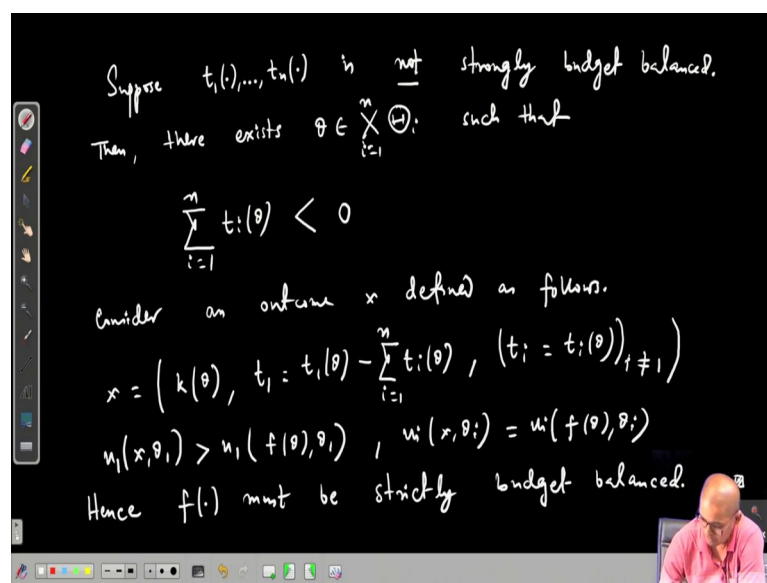 Suppose t₁(·),...,tₙ(·) is not strongly budget balanced.
Then, there exists θ ∈ ⨉ᵢ₌₁ⁿ Θᵢ such that
∑ᵢ₌₁ⁿ tᵢ(θ) < 0
Consider an outcome x defined as follows.
x = (k(θ), t₁ = t₁(θ) - ∑ᵢ₌₁ⁿ tᵢ(θ), (tᵢ = tᵢ(θ))ᵢ≠₁)
u₁(x,θ₁) > u₁(f(θ),θ₁), uᵢ(x,θᵢ) = uᵢ(f(θ),θᵢ)
Hence f(·) must be strictly budget balanced.